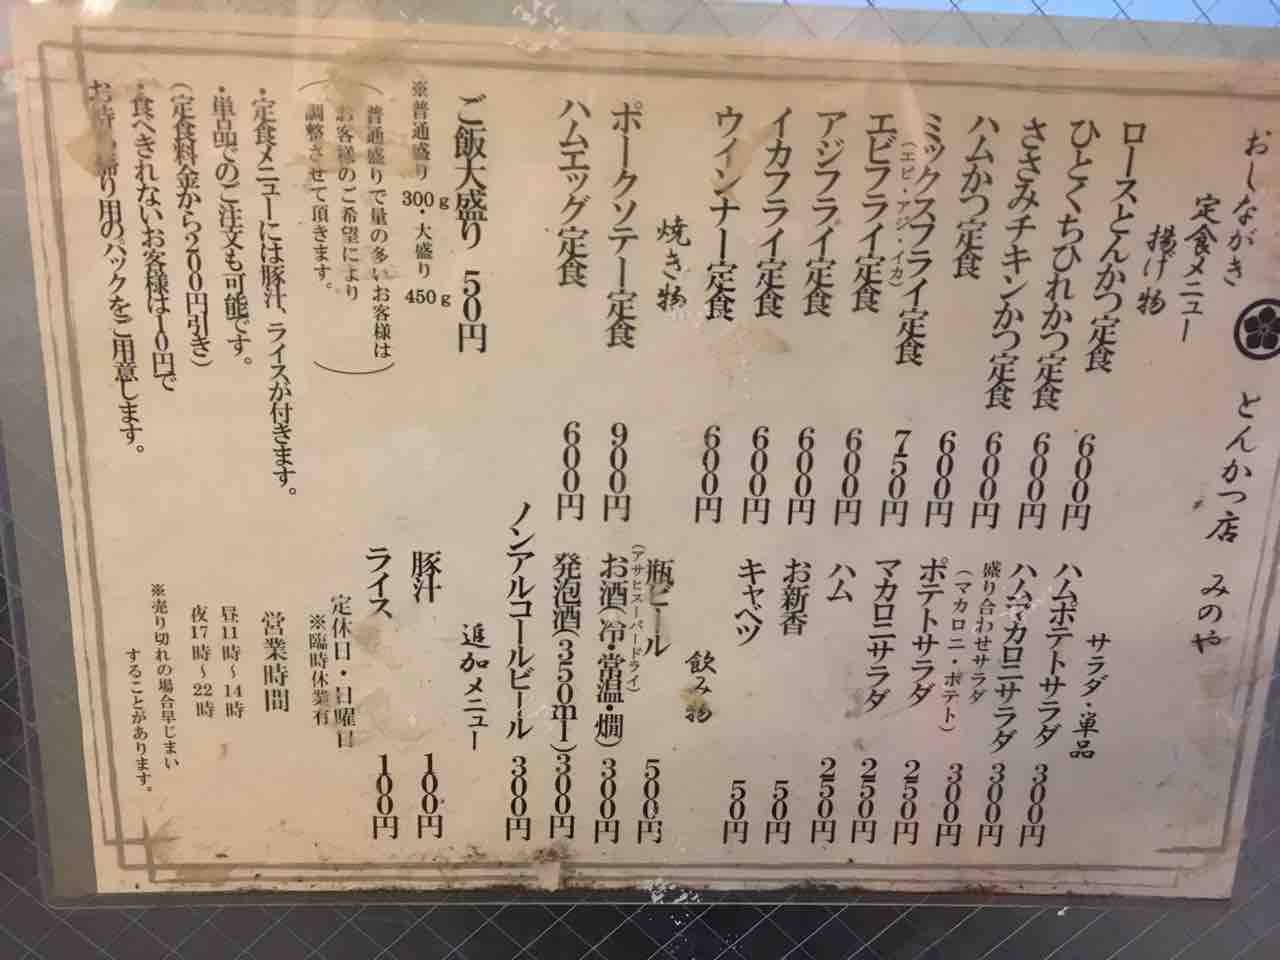 おしながき とんかつ店 みのや
定食メニュー
揚げ物
ロースとんかつ定食 600円
ひとくちひれかつ定食 600円
ささみチキンかつ定食 600円
ハムかつ定食 600円
ミックスフライ定食 750円
(エビ・アジ・イカ)
エビフライ定食 600円
アジフライ定食 600円
イカフライ定食 600円
ウィンナー定食 600円
焼き物
ポークソテー定食 900円
ハムエッグ定食 600円
ご飯大盛り 50円
※普通盛り300g・大盛り450g
(普通盛りで量の多いお客様は
お客様のご希望により
調整させて頂きます。)
・定食メニューには豚汁、ライスが付きます。
・単品でのご注文も可能です。
(定食料金から200円引き)
・食べきれないお客様は10円で
お持ち帰り用のパックをご用意します。
サラダ・単品
ハムポテトサラダ 300円
ハムマカロニサラダ 300円
盛り合わせサラダ 300円
(マカロニ・ポテト)
ポテトサラダ 250円
マカロニサラダ 250円
ハム 250円
お新香 50円
キャベツ 50円
飲み物
瓶ビール 500円
(アサヒスーパードライ)
お酒(冷・常温・燗) 300円
発泡酒(350ml) 300円
ノンアルコールビール 300円
追加メニュー
豚汁 100円
ライス 100円
定休日・日曜日
※臨時休業有
営業時間
昼11時〜14時
夜17時〜22時
※売り切れの場合早じまい
することがあります。